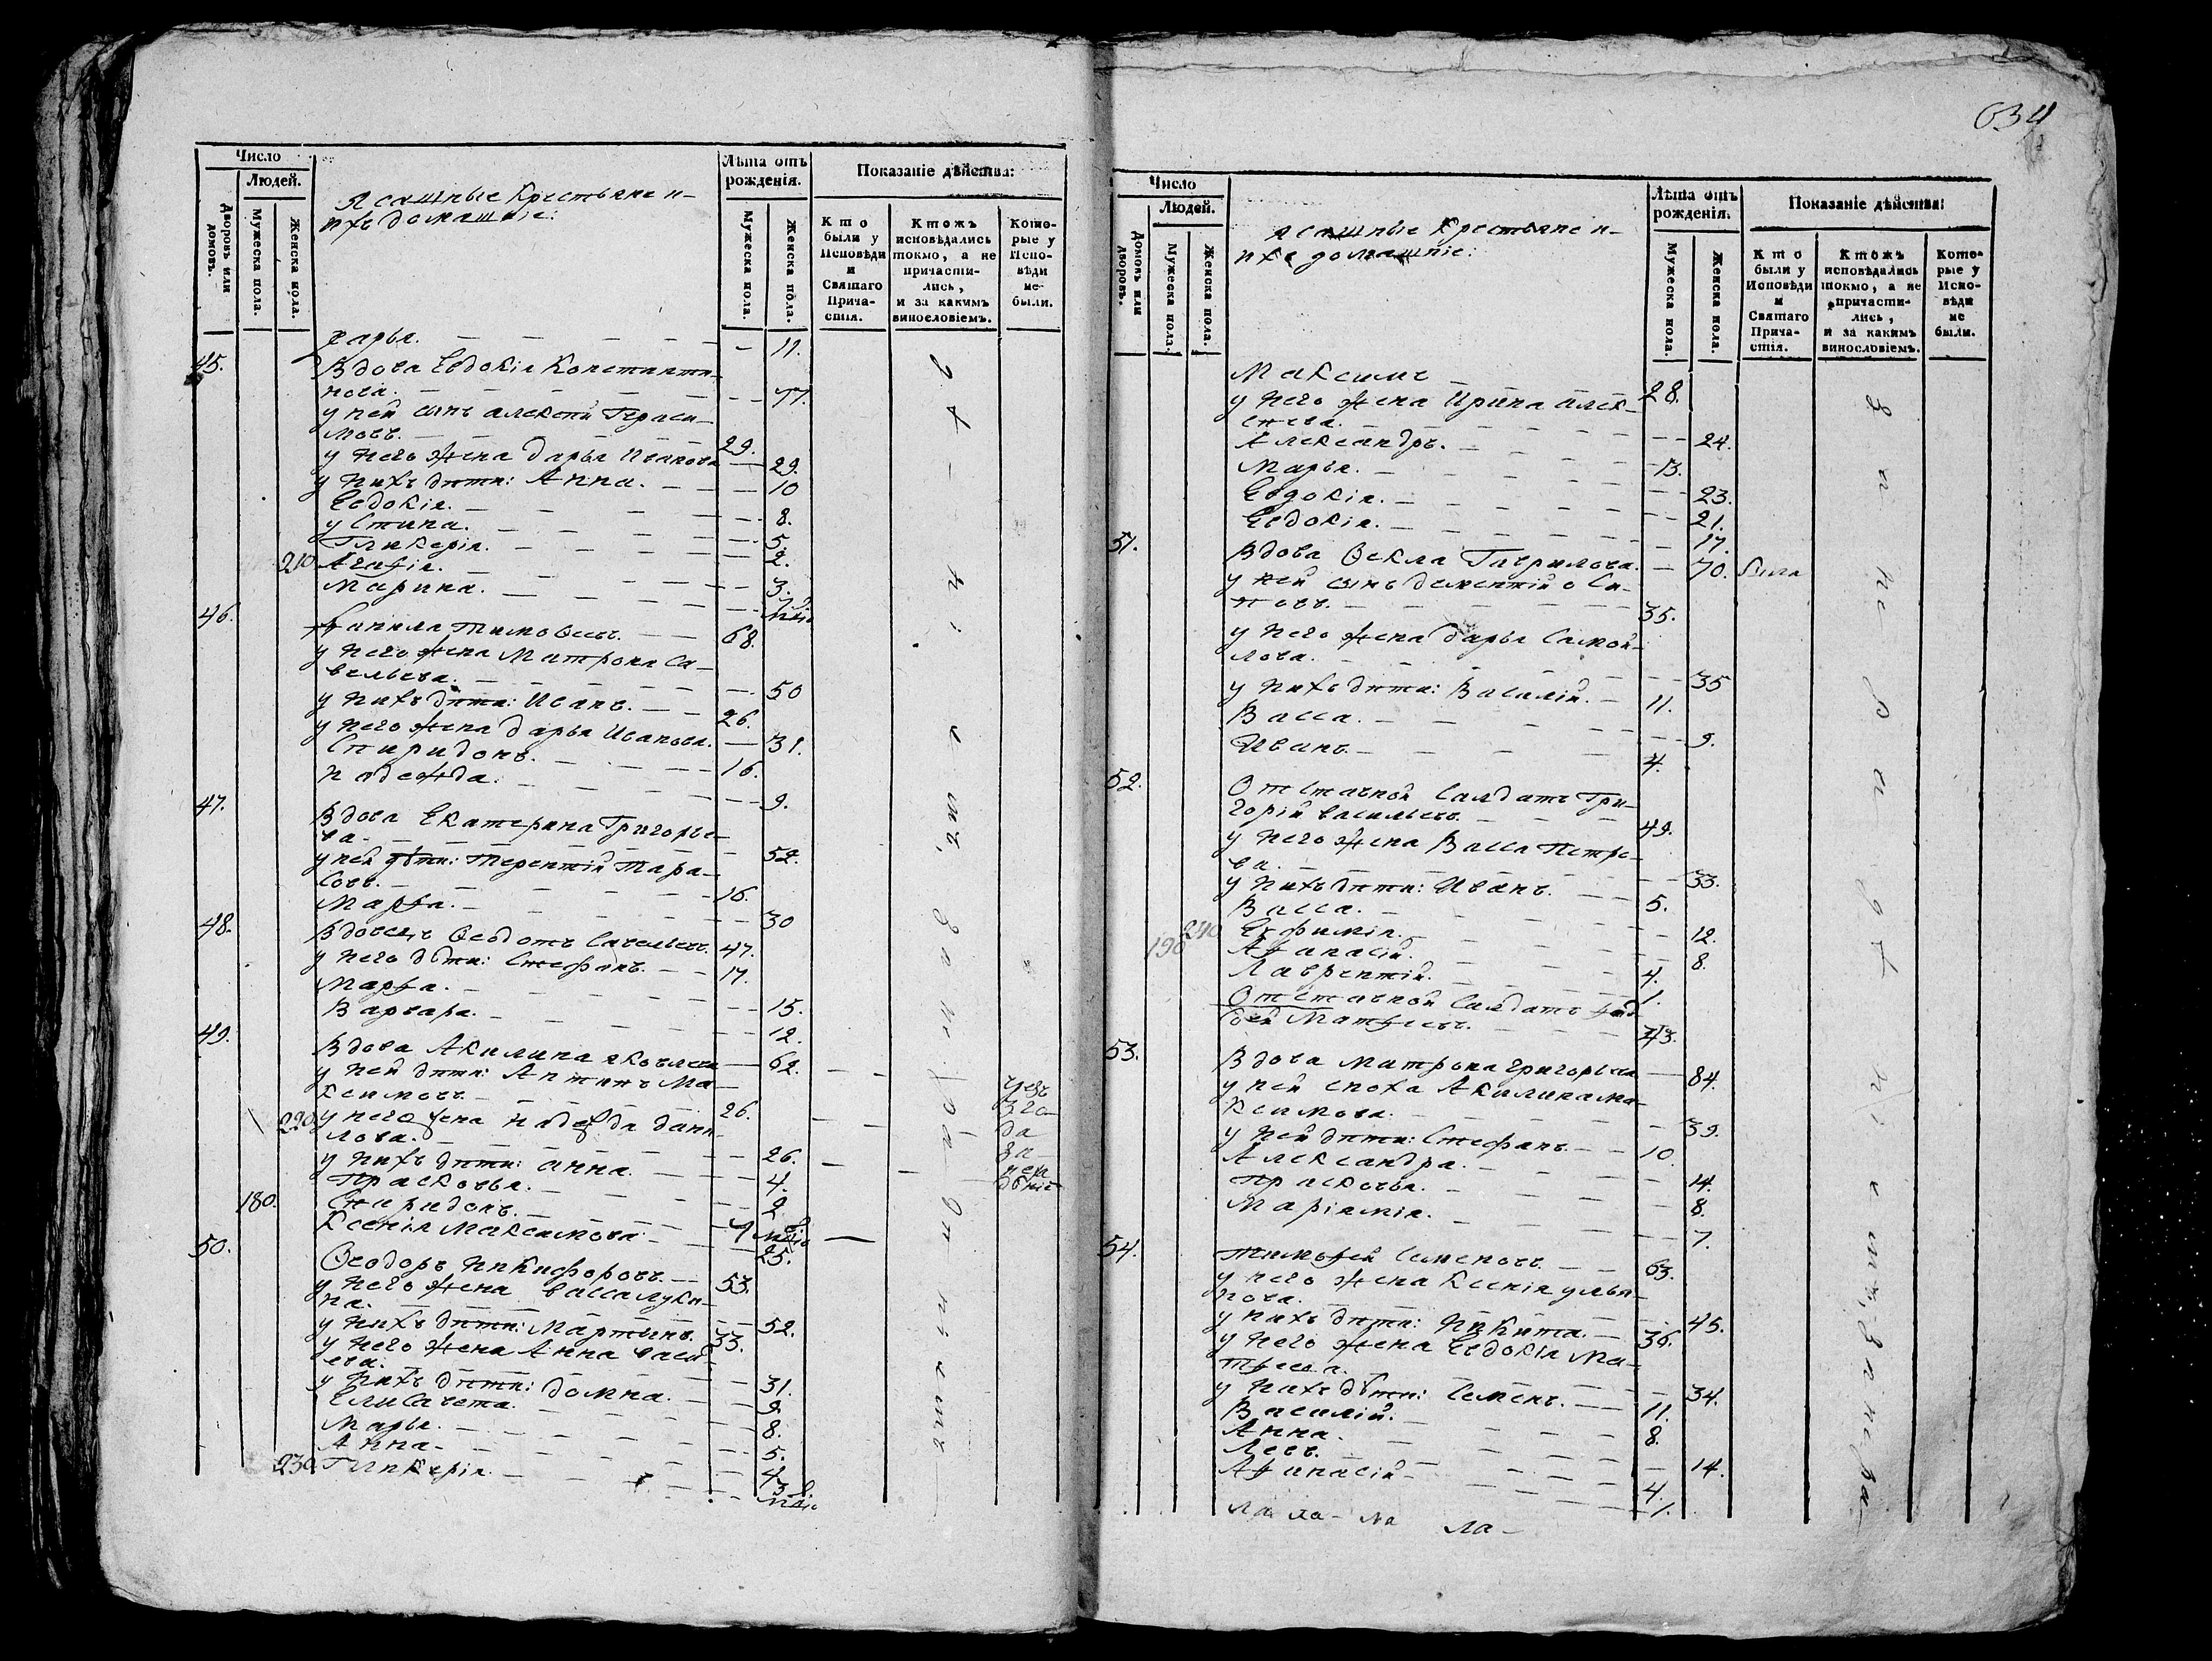 Число
Людей.
Дворовъ или домовъ.
Мужеска пола.
Женска пола.
Ясашные Крестьяне и
ихъ домашніе:
Лѣта отъ
рожденія.
Мужеска пола.
Женска пола.
Показаніе дѣйства:
Кто
были у
Исповѣди
и
Святаго
Прича-
стія.
Ктожъ
исповѣдались
токмо, а не
причасти-
лись,
и за какимъ
винословіемъ.
Кото-
рые у
Испо-
вѣди
не
были.
Дарья. 11.
45. Вдова Евдокія Константи-
нова. 77.
у ней сынъ Алексѣй Гераси-
мовъ. 29.
у него жена Дарья Иванова 29.
у нихъ дѣти: Анна. 10
Евдокія. 8.
Устина. 5.
Гликерія. 2.
210 Агафія. 3.
Марина.
46. Данила Тимоѳеевъ. 68.
у него жена Матрона Са-
вельева. 50
у нихъ дѣти: Иванъ. 26.
у него жена Дарья Иванова. 31.
Спиридонъ. 16.
Надежда. 9.
47. Вдова Екатерина Григорье-
ва. 52.
у ней дѣти: Терентій Тара-
совъ. 16.
Марфа. 30
48. Вдовецъ Ѳеодотъ Савельевъ. 47.
у него дѣти: Стефанъ. 17.
Марфа. 15.
Варвара. 12.
49. Вдова Акилина Яковлева 62.
у ней дѣти: Антонъ Ма-
ксимовъ. 26.
220 у него жена Надежда Дани-
лова. 26.
у нихъ дѣти: Анна. 4.
Прасковья. 2
180. Спиридонъ.
Ксенія Максимова 25.
50. Ѳеодоръ Никифоровъ. 53.
у него жена Васса Луки-
на. 52.
у нихъ дѣти: Мартинъ. 33.
у него жена Анна Васи-
ева. 31.
у нихъ дѣти: Домна. 9.
Елисавета. 8.
Марья. 5.
Анна. 4.
230 Гликерія.
634
Число
Людей.
Домовъ или дворовъ.
Мужеска пола.
Женска пола.
Ясашніе Крестьяне и
ихъ домашніе:
Лѣта отъ
рожденія.
Мужеска пола.
Женска пола.
Показаніе дѣйства:
Кто
были у
Исповѣди
и
Святаго
Прича-
стія.
Ктожъ
исповѣдались
токмо, а не
причасти-
лись,
и за какимъ
винословіемъ.
Кото-
рые у
Испо-
вѣди
не
были.
Максимъ 28.
у него жена Ирина Алек-
сѣева. 24.
Александръ. 13.
Марья. 23.
Евдокія. 21.
Евдокія. 17.
51. Вдова Ѳекла Гаврилова. 70. была
у ней сынъ Дементій Оси-
повъ. 35.
у него жена Дарья Самой-
лова. 35
у нихъ дѣти: Василій. 11.
Васса. 9.
Иванъ. 4.
52. Отставной Салдатъ Гри-
горій Васильевъ. 49.
у него жена Васса Петро-
ва. 33.
у нихъ дѣти: Иванъ. 5.
Васса. 12.
240 Евфимія. 8.
190 Афанасій. 4.
Лаврентій. 1.
Отставной Салдатъ
Матфеевъ. 43.
53. Вдова Матрона Григорьева 84.
у ней сноха Акилина Ма-
ксимова. 39.
у ней дѣти: Стефанъ. 10.
Александра. 14.
Прасковья. 8.
Маріамія. 7.
54. Тимофей Семеновъ. 63.
у него жена Ксенія Улья-
нова. 45.
у нихъ дѣти: Никита. 36.
у него жена Евдокія Ма-
тфеева. 34.
у нихъ дѣти: Семенъ. 11.
Василій. 8.
Анна. 14.
Левъ. 4.
Афанасій 1.